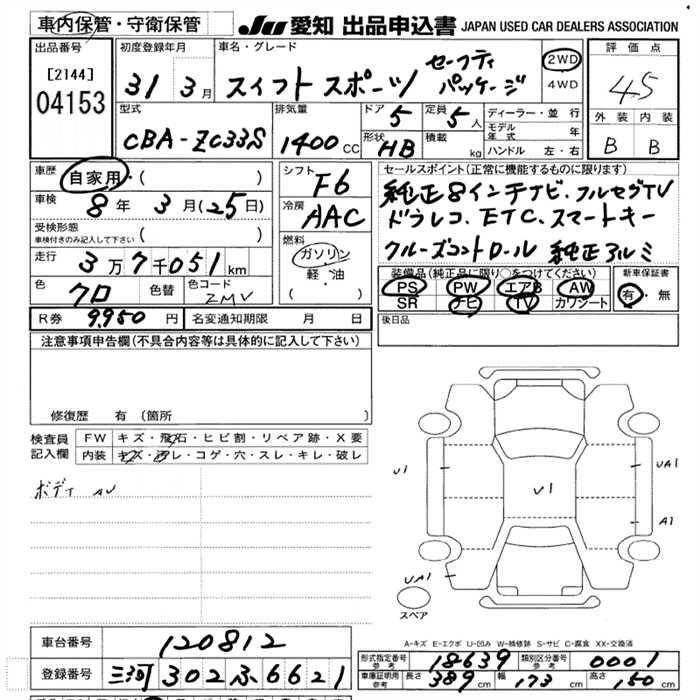 車内保管・守衛保管
JU 愛知 出品申込書 JAPAN USED CAR DEALERS ASSOCIATION
出品番号
[2144]
04153
初度登録年月
31 3月
車名・グレード
スイフトスポーツ セーフティパッケージ
2WD
4WD
評価点
45
外装 内装
B B
型式
CBA-ZC33S
排気量
1400 CC
ドア 5
形状 HB
定員 5人
積載 kg
ディーラー・並行
モデル年式 年
ハンドル 左・右
車歴 自家用・( )
車検 8年 3月(25日)
受検形態
車検付きのみ記入して下さい ( )
走行 3万7千051km
色 クロ 色替 色コード ZMV
R券 9,950円 名変通知期限 月 日
シフト F6
冷房 AAC
燃料
ガソリン
軽・油
( )
セールスポイント(正常に機能するものに限ります)
純正8インチナビ・フルセグTV
ドラレコ、ETC、スマートキー
クルーズコントロール 純正アルミ
装備品(純正品に限り○をつけてください)
PS PW エアB AW
SR ナビ TV カワシート
新車保証書
有・無
後日品
注意事項申告欄(不具合内容等は具体的に記入して下さい)
修復歴 有(箇所 )
検査員記入欄
FW キズ・飛石・ヒビ割・リペア跡・X要
内装 キズ・汚レ・コゲ・穴・スレ・キレ・破レ
ボディ AU
U1
U1
UA1
A1
UA1
スペア
A-キズ E-エクボ U-凹み W-補修跡 S-サビ C-腐食 XX-交換済
車台番号 120812
登録番号 三河 302 ふ 6621
形式指定番号 参考 18639
類別区分番号 参考 0001
車庫証明用 参考 長さ 389cm 幅 173cm 高さ 150cm